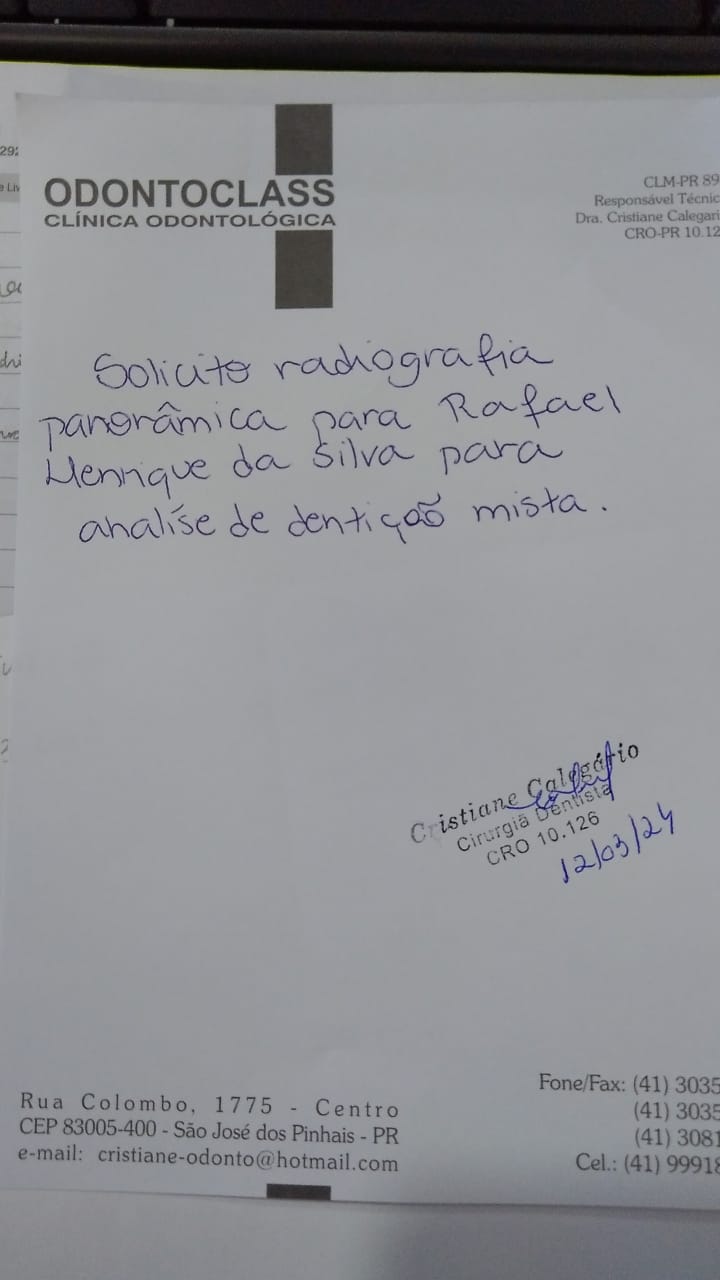 292
ODONTOCLASS
CLÍNICA ODONTOLÓGICA
CLM-PR 89
Responsável Técnic
Dra. Cristiane Calegari
CRO-PR 10.12
Solicito radiografia
panorâmica para Rafael
Henrique da Silva para
analíse de dentição mista.
Cristiane Calegário
Cirurgiã Dentista
CRO 10.126
12/03/24
Rua Colombo, 1775 - Centro
CEP 83005-400 - São José dos Pinhais - PR
e-mail: cristiane-odonto@hotmail.com
Fone/Fax: (41) 3035
(41) 3035
(41) 3081
Cel.: (41) 99918